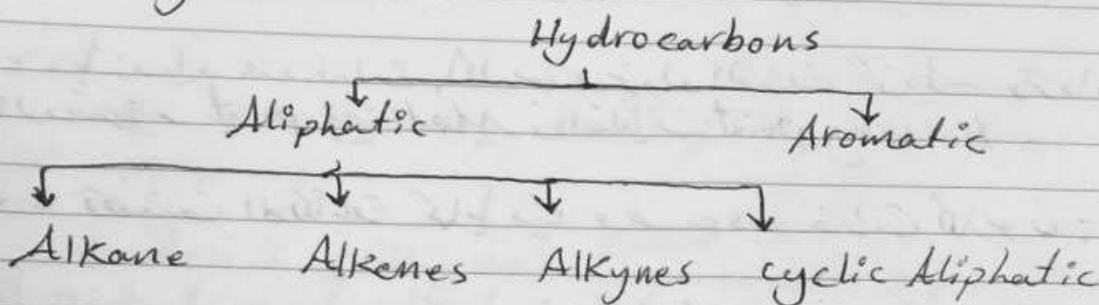 Hydrocarbons
Aliphatic Aromatic
Alkane Alkenes Alkynes cyclic Aliphatic